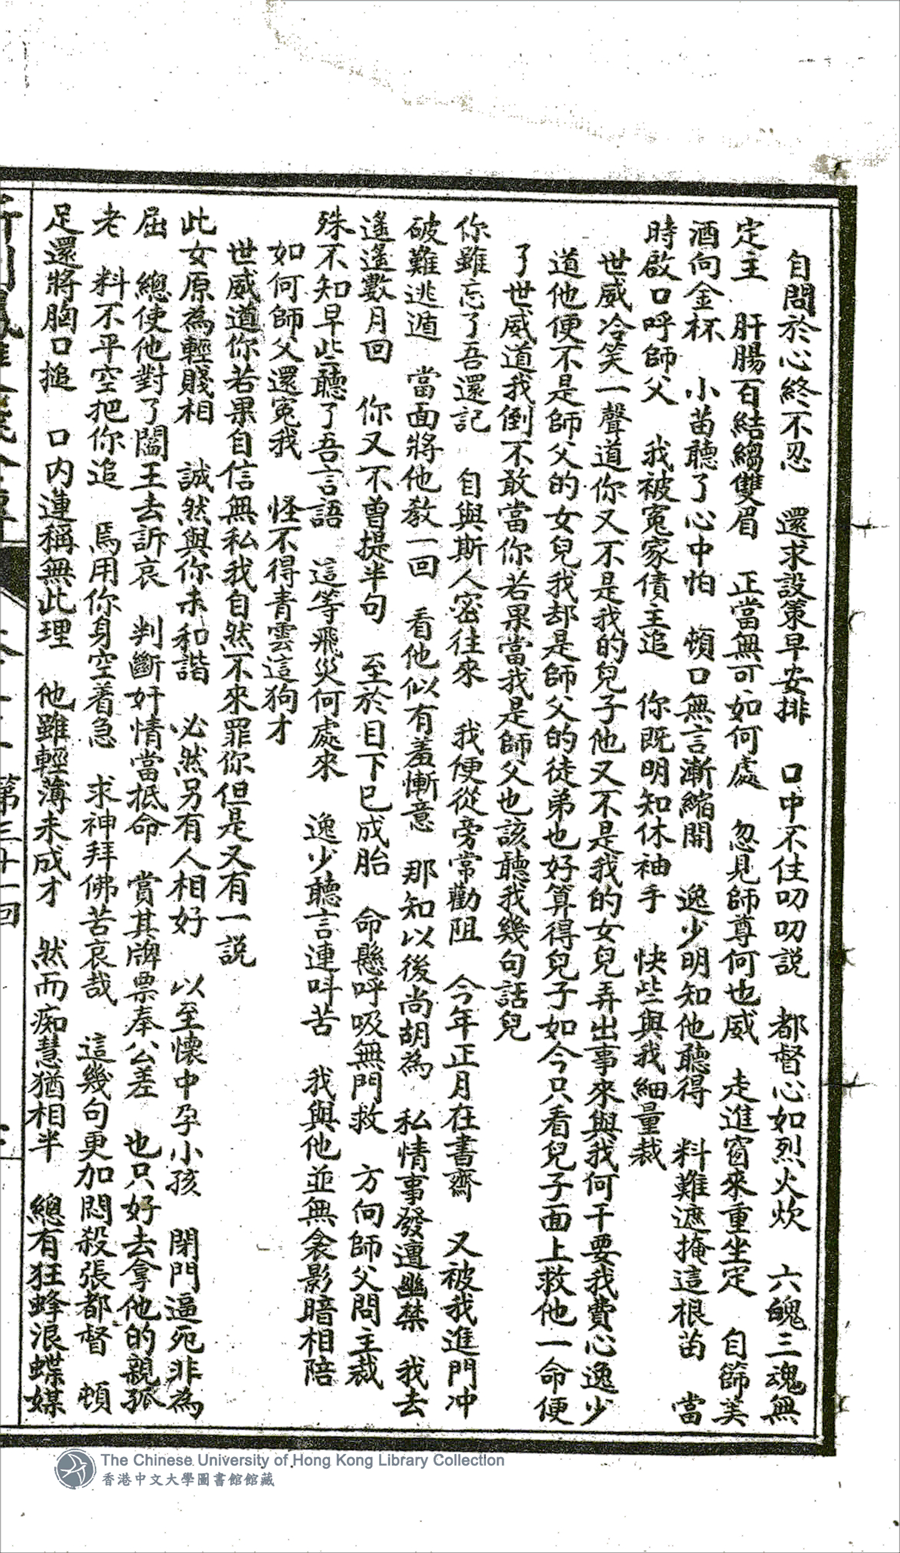 自問於心終不忍　還求設策早安排　口中不住叨叨說　都督心如烈火炊　六魄三魂無
定主　肝腸百結縐雙眉　正當無可如何處　忽見師尊何也威　走進窗來重坐定　自篩美
酒向金杯　小苗聽了心中怕　頓口無言漸縮開　逸少明知他聽得　料難遮掩這根苗　當
時啟口呼師父　我被寃家債主追　你既明知休袖手　快些與我細量裁
世威冷笑一聲道你又不是我的兒子他又不是我的女兒弄出事來與我何干要我費心逸少
道他便不是師父的女兒我却是師父的徒弟也好算得兒子如今只看兒子面上救他一命便
了世威道我倒不敢當你若果當我是師父也該聽我幾句話兒
你雖忘了吾還記　自與斯人密往來　我便從旁常勸阻　今年正月在書齋　又被我進門冲
破難逃遁　當面將他教一回　看他似有羞慚意　那知以後尚胡為　私情事發遭幽禁　我去
遙遙數月回　你又不曾提半句　至於目下已成胎　命懸呼吸無門救　方向師父問主裁
殊不知早些聽了吾言語　這等飛災何處來　逸少聽言連呌苦　我與他並無衾影暗相陪
如何師父還寃我　怪不得青雲這狗才
世威道你若果自信無私我自然不來罪你但是又有一說
此女原為輕賤相　誠然與你未和諧　必然另有人相好　以至懷中孕小孩　閉門逼死非為
屈　總使他對了閻王去訴哀　判斷奸情當抵命　賞其牌票奉公差　也只好去拿他的親孤
老　料不平空把你追　焉用你身空着急　求神拜佛苦哀哉　這幾句更加悶殺張都督　頓
足還將胸口搥　口內連稱無此理　他雖輕薄未成才　然而痴慧猶相半　總有狂蜂浪蝶媒
第三十一回
The Chinese University of Hong Kong Library Collection
香港中文大學圖書館館藏